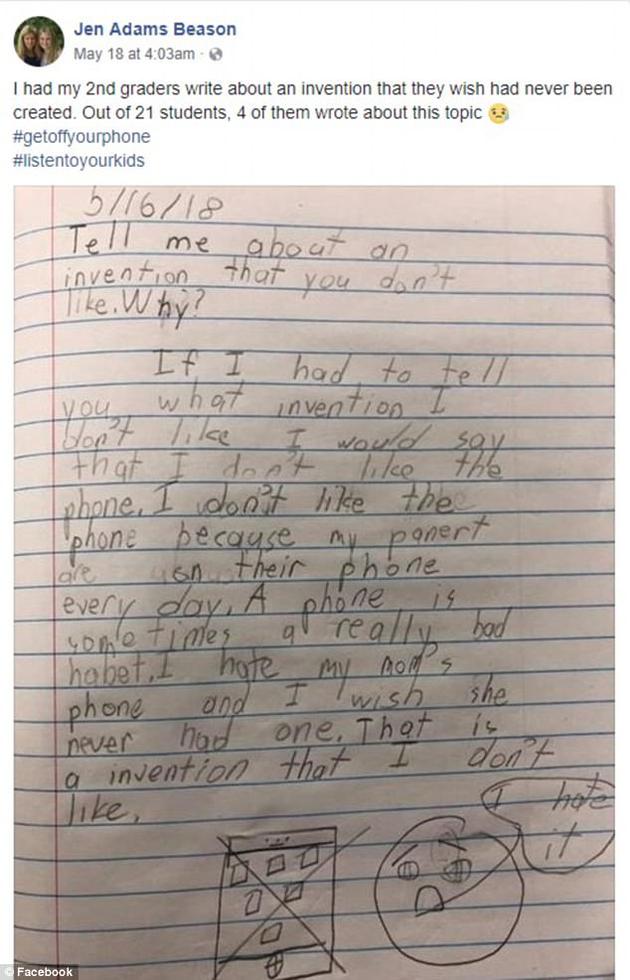 Jen Adams Beason
May 18 at 4:03am ·
I had my 2nd graders write about an invention that they wish had never been
created. Out of 21 students, 4 of them wrote about this topic 😢
#getoffyourphone
#listentoyourkids
5/16/18
Tell me about an
invention that you don't
like. Why?
If I had to tell
you what invention I
don't like I would say
that I don't like the
phone. I don't like the
phone because my panert
are on their phone
every day. A phone is
sometimes a really bad
habet. I hate my mom's
phone and I wish she
never had one. That is
a invention that I don't
like.
I hate
it
© Facebook